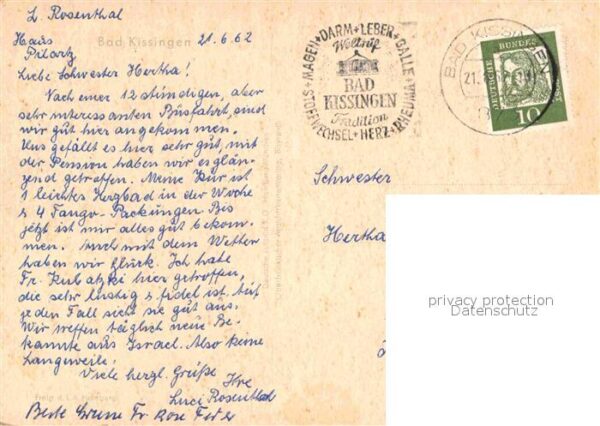 L. Rosenthal
Haus
Pilartz
Bad Kissingen
21.6.62
Liebe Schwester Hertha!
Nach einer 12 stündigen, aber
sehr interessanten Busfahrt, sind
wir gut hier angekommen.
Uns gefällt es hier sehr gut, mit
der Pension haben wir es glän-
zend getroffen. Meine Kur ist
1 leichtes Herzbad in der Woche
& 4 Fango-Packungen. Bis
jetzt ist mir alles gut bekom-
men. Auch mit dem Wetter
haben wir Glück. Ich habe
Fr. Kubatzki hier getroffen,
die sehr lustig & fidel ist. Auf
jeden Fall sieht sie gut aus.
Wir treffen täglich neue Be-
kannte aus Israel. Also keine
Langeweile!
Viele herzl. Grüße
Ihre
Luci Rosenthal
Beste Grüsse Fr Rose
MAGEN + DARM + LEBER + GALLE + RHEUMA + HERZ + STOFFWECHSEL +
Weltruf
BAD
KISSINGEN
Tradition
BAD KISSINGEN
DEUTSCHE BUNDESPOST
10
Schwester
Hertha
privacy protection
Datenschutz